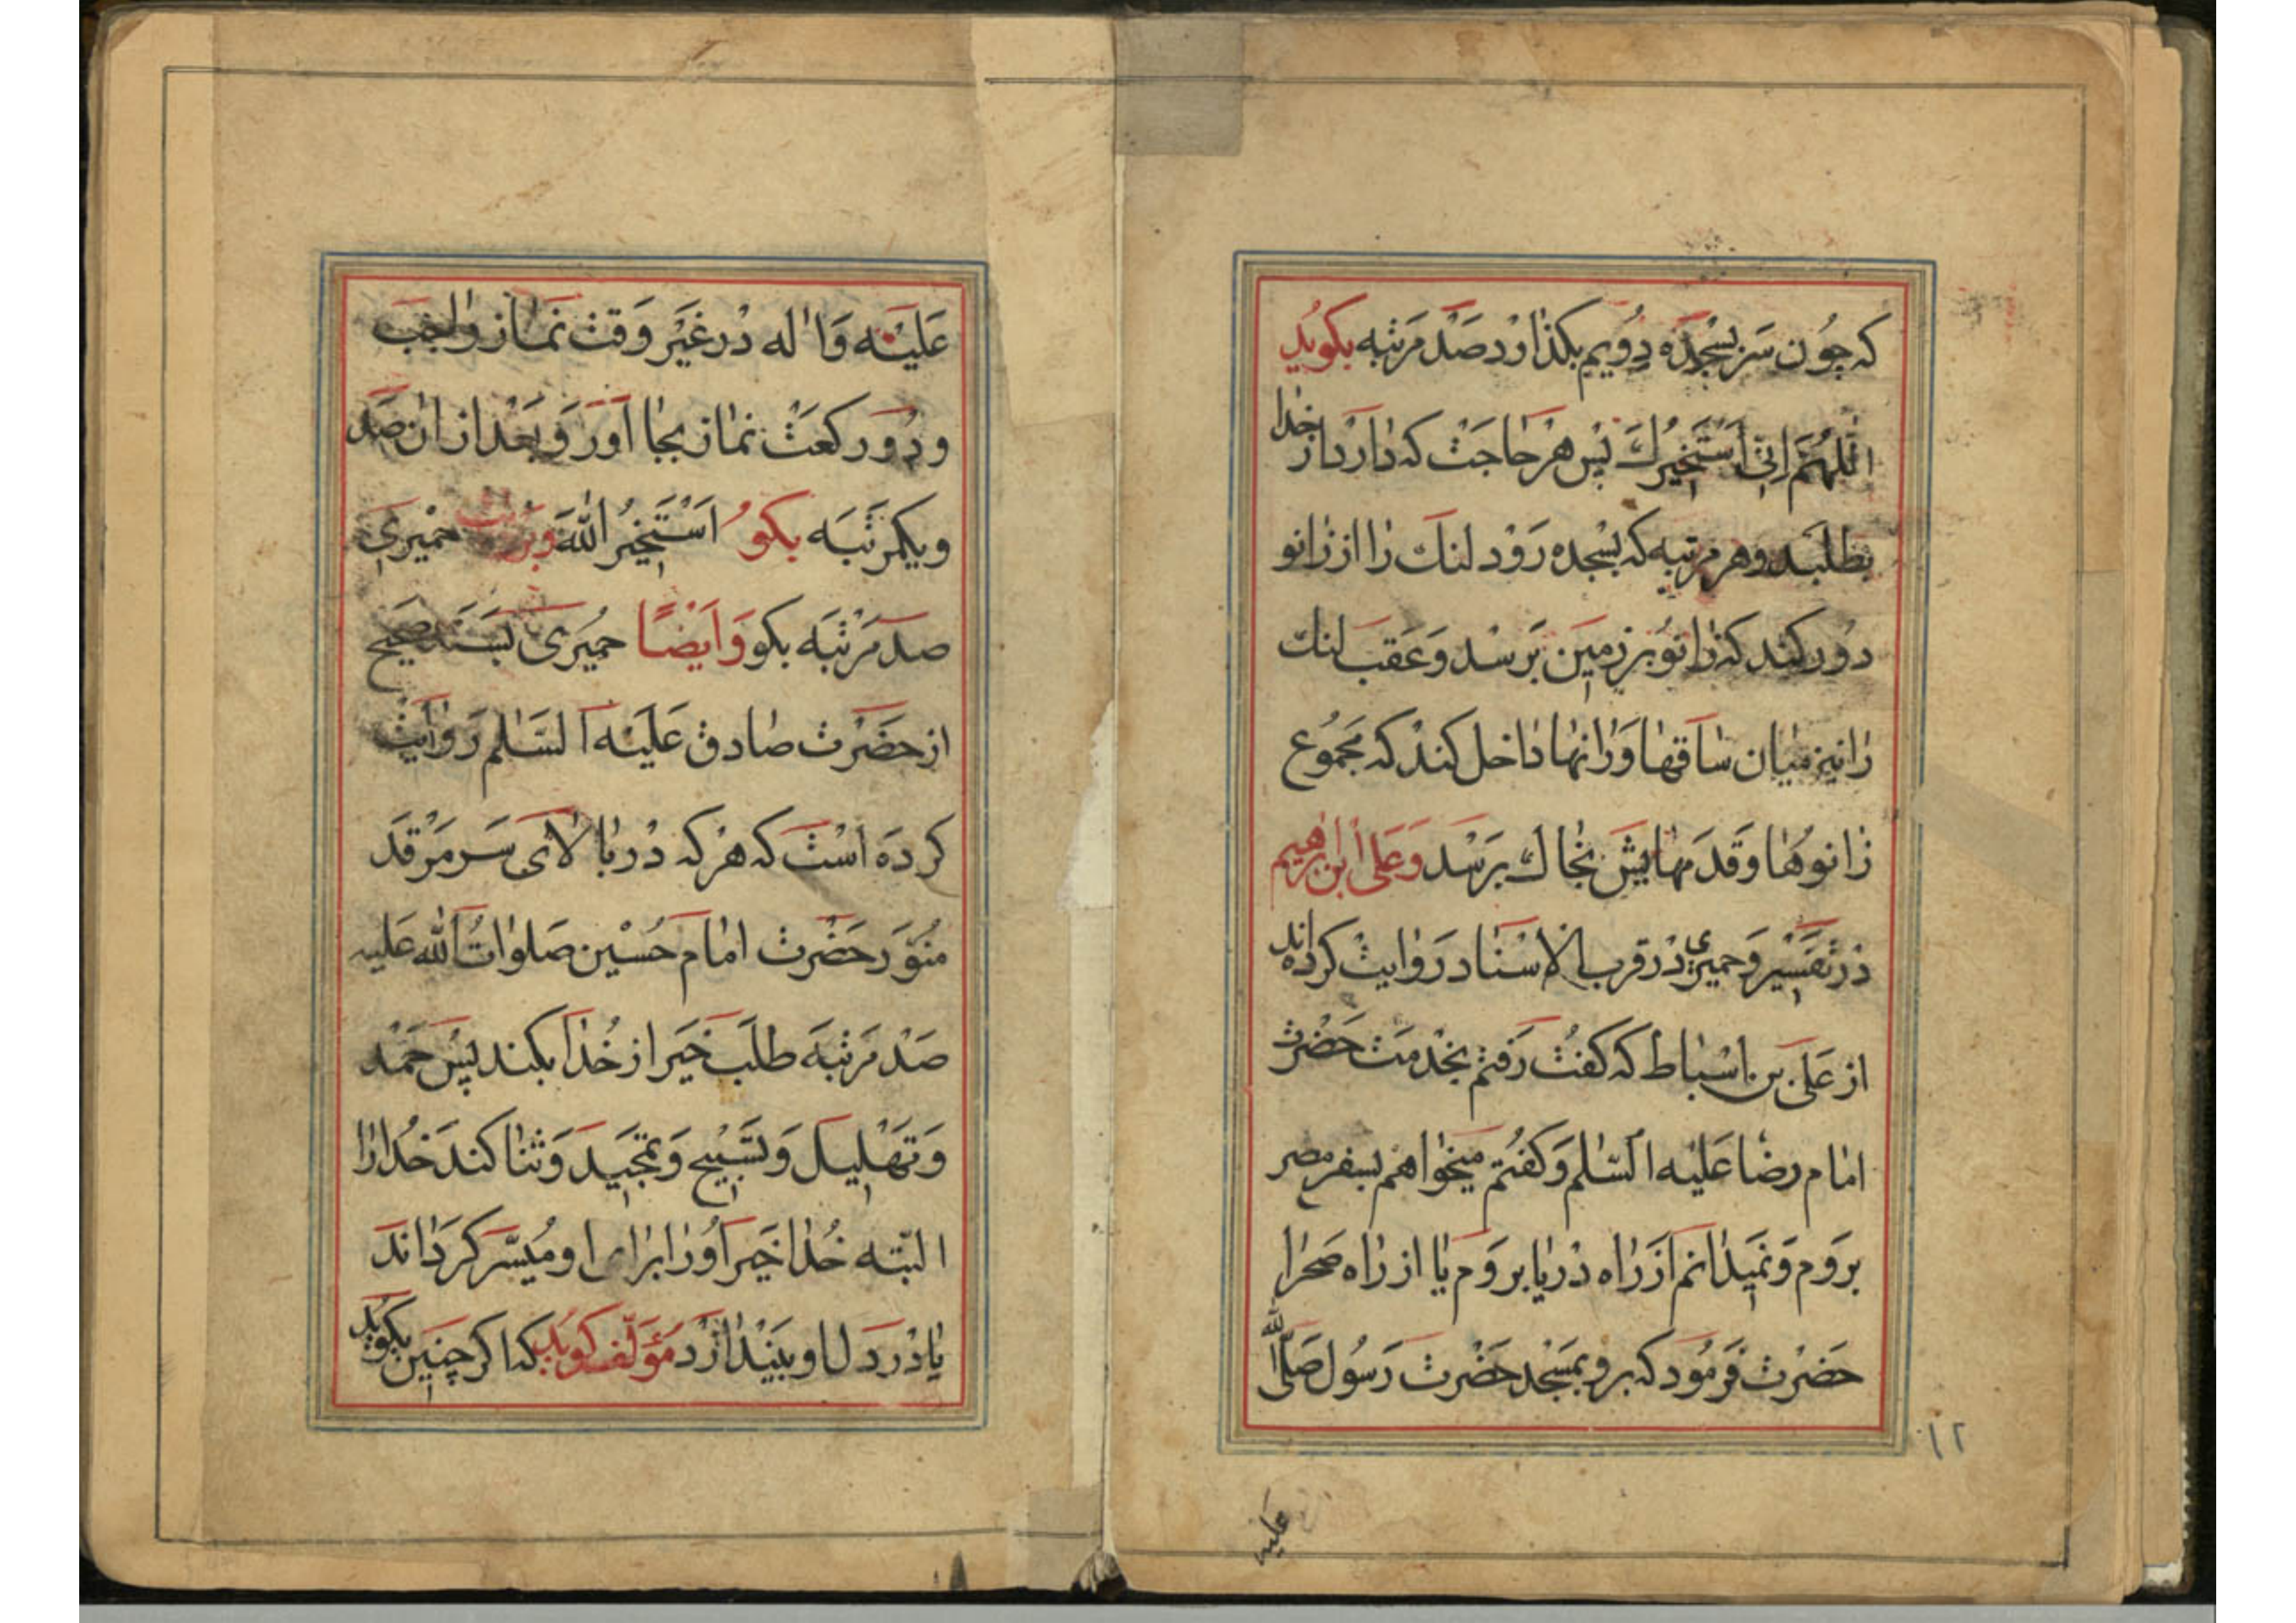 که چون سر بسجده دویم بکذارد صد مرتبه بکوید
اللهم انی استخیرك پس هر حاجت که دارد از خدا
بطلبد و هر مرتبه که بسجده رود لنك را از زانو
دور کند که زانو بر زمین برسد و عقب لنك
را نیز میان ساقها و رانها داخل کند که مجموع
زانوها و قدمهایش بخاك برسد و علی ابن ابرهیم
در تفسیر و حمیری در قرب الاسناد روایت کرده اند
از علی بن اسباط که کفت رفتم بخدمت حضرت
امام رضا علیه السلم و کفتم میخواهم بسفر مصر
بروم و نمیدانم از راه دریا بروم یا از راه صحرا
حضرت فرمود که برو بمسجد حضرت رسول صلی الله
۱۲
علیه
علیه و اله در غیر وقت نماز واجب
و دو رکعت نماز بجا اور و بعد از ان صد
و یکمرتبه بکو استخیر الله حمیری
صد مرتبه بکو و ایضا حمیری بسند صحیح
از حضرت صادق علیه السلم روایت
کرده است که هر که در بالای سر مرقد
منور حضرت امام حسین صلوات الله علیه
صد مرتبه طلب خیر از خدا بکند پس حمد
و تهلیل و تسبیح و تمجید و ثنا کند خدا را
البته خدا خیر او را برای او میسر کرداند
یا در دل او بیندازد مؤلف کوید که اکر چنین بکوید